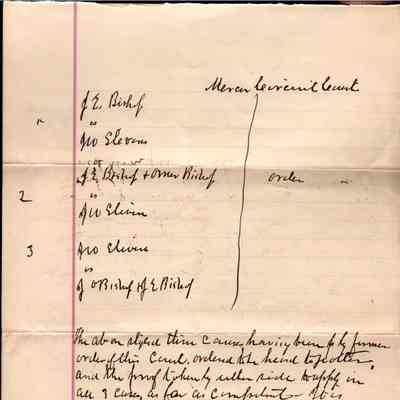 Mercer Circuit Court
J. E. Bishop
vs
Jno Stevens
J. E. Bishop + Omer Bishop order
2 vs
Jno Stiven
3 Jno Stivens
vs
J O Bishop + J E Bishop
The above styled three causes having been by former
order of this Court, ordered to be heard together,
and the proof taken by either side to apply in
all 3 cases as far as competent - It is